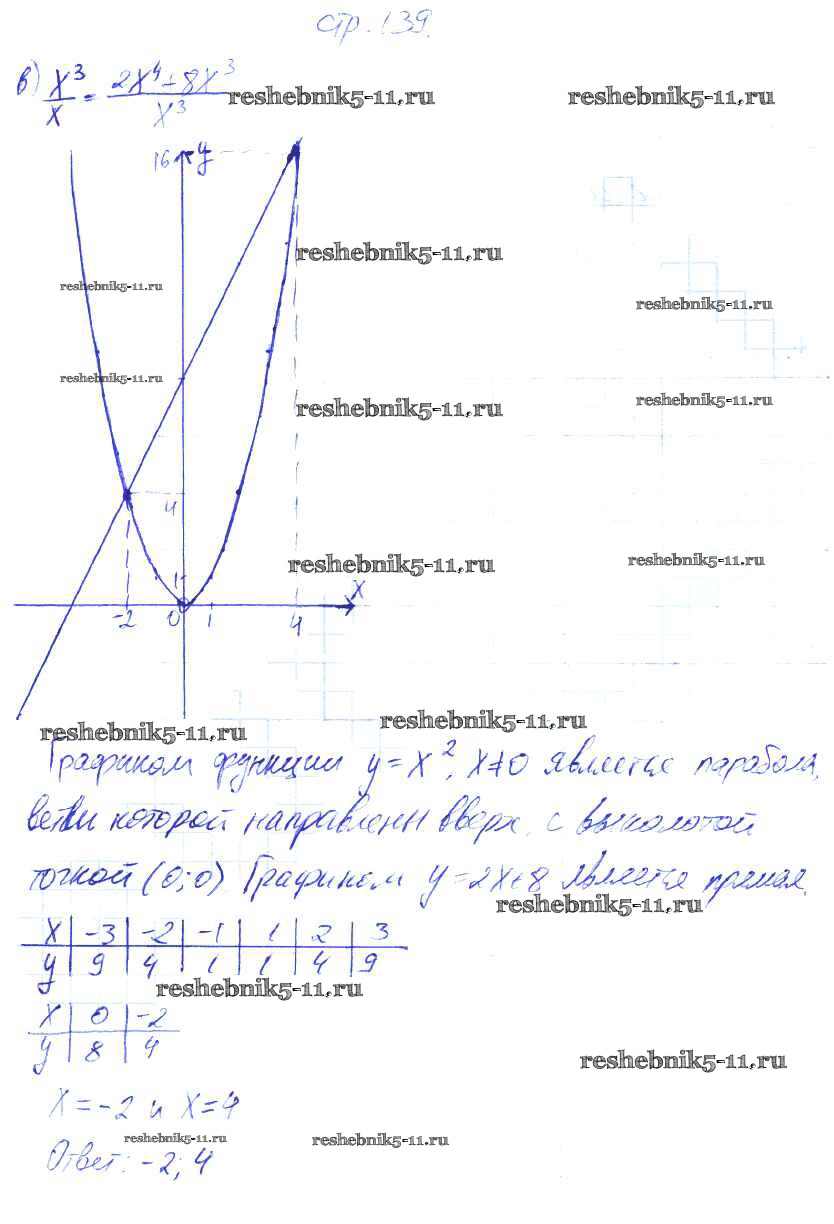 стр. 139.
в) x³/x = (2x⁴+8x³)/x³
reshebnik5-11.ru reshebnik5-11.ru
16 y
reshebnik5-11.ru
reshebnik5-11.ru
reshebnik5-11.ru
reshebnik5-11.ru
reshebnik5-11.ru
reshebnik5-11.ru
4
reshebnik5-11.ru
reshebnik5-11.ru
1
x
-2 0 1 4
reshebnik5-11.ru
reshebnik5-11.ru
Графиком функции y = x², x≠0 является парабола,
ветви которой направлены вверх с выколотой
точкой (0;0) Графиком y = 2x+8 является прямая.
reshebnik5-11.ru
x | -3 | -2 | -1 | 1 | 2 | 3
y | 9 | 4 | 1 | 1 | 4 | 9
reshebnik5-11.ru
x | 0 | -2
y | 8 | 4
reshebnik5-11.ru
x = -2 и x = 4
reshebnik5-11.ru reshebnik5-11.ru
Ответ: -2; 4